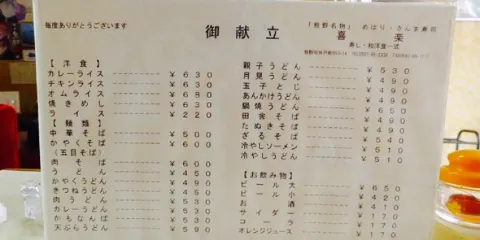 毎度ありがとうございます
御献立
「熊野名物」 めはり・さんま寿司
喜楽
寿し・和洋食一式
【洋食】
カレーライス ¥630
チキンライス ¥630
オムライス ¥680
焼きめし ¥630
ライス ¥220
【麺類】
中華そば ¥500
かやくそば ¥600
(五目そば)
肉そば ¥600
うどん ¥450
かやくうどん ¥490
きつねうどん ¥450
肉うどん ¥510
カレーうどん ¥510
かもなんば ¥540
天ぷらうどん ¥590
親子うどん ¥530
月見うどん ¥490
玉子とじ ¥490
あんかけうどん
鍋焼うどん
田舎そば
たぬきそば
ざるそば
冷やしソーメン ¥510
冷やしうどん ¥510
【お飲み物】
ビール大 ¥650
ビール小 ¥420
お酒 ¥410
サイダー ¥170
コーラ ¥170
オレンジジュース